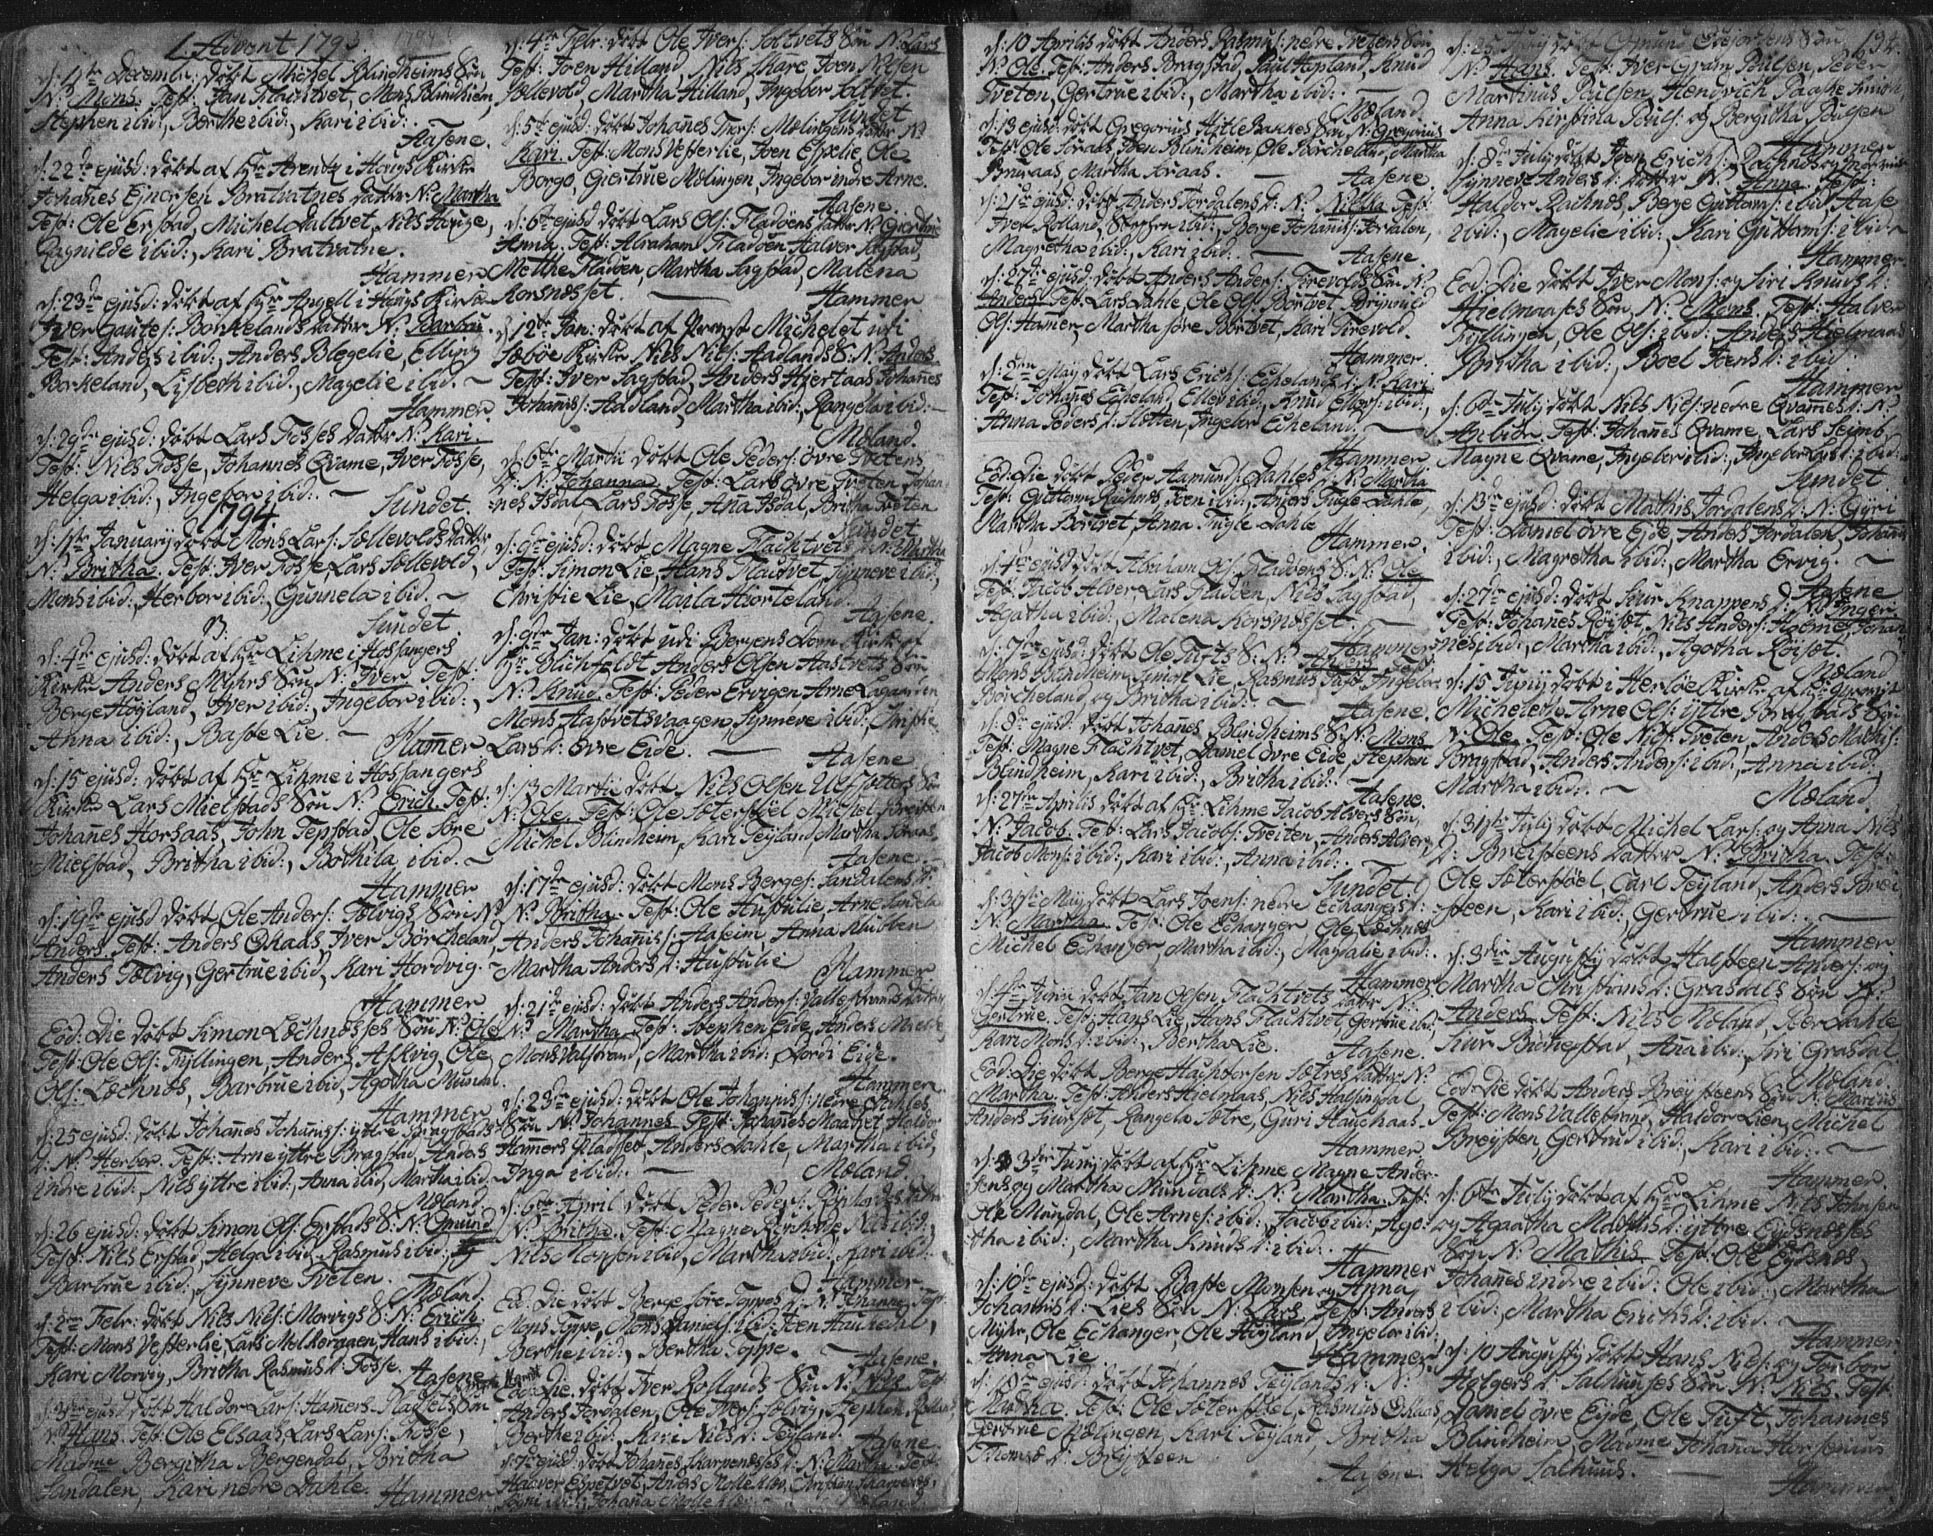 1. Advent 1793
d: 1ste Decembr: döbt Michel Blindheims Sön
N: Mons. Test: Jan Flachtvet, Mons Blindheim,
Stephen ibid:, Berthe ibid:, Kari ibid:.
Aasene.
d: 22de ejusd: döbt af Hr Arentz i Kirke
Johanes Ejnersen Bratvatnes datter N: Martha
Test: Ole Erstad, Michel Daltvet, Nils Hauge,
Ragnilde ibid:, Kari Bratvatne.
Hammer
d: 23de ejusd: döbt af Hr Angell i Haus Kirke
Iver Gautes: Borkelands datter N: Barbru.
Test: Anders ibid:, Anders Blegelie, Elling
Borkeland, Lisbeth ibid:, Magelie ibid. –
Hammer
d: 29de ejusd: döbt Lars Fosses datter N: Kari.
Test: Nils Fosse, Johannes Qvame, Iver Fosse,
Helga ibid:, Ingebor ibid:. – Sundet.
1794.
d: 1ste January döbt Mons Lars: Sollevolds datter
N: Britha. Test: Iver Fosse, Lars Sollevold,
Mons ibid:, Herbor ibid:, Gunnela ibid. –
Sundet
d: 4de ejusd: döbt af Hr Lihme i Hossangers
Kirke Anders Myhrs Sön N: Iver. Test:
Berge Höyland, Iver ibid:, Ingebor ibid:,
Anna ibid:, Baste Lie. – Hammer
d: 15 ejusd: döbt af Hr Lihme i Hossangers
Kirke Lars Mielstads Sön N: Erich. Test:
Johanes Horsaas, John Tepstad, Ole Söre
Mielstad, Britha ibid:, Bothila ibid. –
Hammer
d: 19de ejusd döbt Ole Anders: Tolvigs Sön N:
Anders. Test: Anders Qhaas, Iver Börcheland,
Anders Tolvig, Gertrue ibid, Kari Hordvig. –
Hammer
Eod: Die döbt Simon Lechnesses Sön N: Ole
Test: Ole Ols: Tyllingen, Anders Askvig, Ole
Ols: Lechnes, Barbrue ibid, Agotha Mundal.
Hammer
d: 25 ejusd: döbt Johanes Johannis: yttre Bragstads
D: N: Herbor. Test: Arne yttre Bragstad, Anders
indre ibid:, Nils yttre ibid:, Anna ibid, Martha ibid.
Moland
d: 26 ejusd: döbt Simon Ols: Erstads S: N: Gmund
Test: Nils Erstad, Helga ibid, Rasmus ibid:,
Barbrue ibid:, Synneve Tveten.
Moland
d: 2den Febr: döbt Nils Nils: Morvigs S: N: Erich.
Test: Mons Vesterlie, Lars Mel, Hans ibid:,
Kari Morvig, Britha Rasmus D: Fosse. Aasene
ejusd döbt Haldor Lars: Hamers-Pladsets Sön
N: Hans. Test: Ole Elsaas, Lars Lars: Fosse,
Madme Bergitha Bergendal, Britha
Sandalen, Kari nedre Dahle. Hammer
d: 4de Febr: döbt Ole Ivers: Soltvets Sön N: Lars
Test: Joen Hilland, Nils Skare, Joen Nilsen
Sollevold, Martha Hilland, Ingebor Soltvet.
Sundet
d: 5te ejusd: döbt Johanes Thors: Molingens datter N:
Kari. Test: Mons Vesterlie, Joen Espelie, Ole
Borgo, Giertrue Molingen, Ingebor indre Arne.
Aasene
d: 6te ejusd: döbt Lars Ols: Fladöens datter N: Giertrue
Anna. Test: Abraham Fladöen, Halvor Sagstad,
Metthe Fladöen, Martha Sagstad, Malena
Korsnesset. – Hammer
d: 12te Jan: döbt af Provst Michelet udi
Sæböe Kirke Nils Nils: Aadlands S: N: Anders
Test: Iver Sagstad, Anders Hiertaas, Johannes
Johannis: Aadland, Martha ibid:, Rangela ibid:.
Moland.
d: 6te Martii döbt Ole Peders: övre Tvetens
D: N: Johanna. Test: Lars övre Tveten, Johan
nes Isdal, Lars Fosse, Ana Isdal, Britha Tveten
Sundet
d: 9de ejusd: döbt Magne Flachtvets D: N: Martha
Test: Simon Lie, Hans Flachtvet, Synneve ibid;
Christie Lie, Marla Horteland.
Aasene.
d: 9de Jan: döbt udi Bergens Dom Kirke af
Hr Blichfeldt Anders Olsen Aastvets Sön
N: Knud. Test: Peder Ervigen, Arne Lagaarden
Mons Aastvetsvaagen, Synneve ibid, Christie
Lars D: övre Eide. – Aasene
d: 13 Martii döbt Nils Olsen Ulfsets Sön
N: Ole. Test: Ole Sæterstöel, Michel Breisten
Michel Blindheim, Kari Teyland, Martha Soraas
Aasene.
d: 17de ejusd: döbt Mons Berges: Sandalens D:
N: Britha. Test: Ole Hustulie, Arne Sandal,
Anders Johannis: Aaseim, Anna Klubben
Martha Anders D: Hustulie Hammer
d: 21de ejusd: döbt Anders Anders: Vallestrands datter
N: Martha. Test: Stephen Eide, Anders
Mons Valstrand, Martha ibid:, Gordi Eide.
Hammer
d: 23de ejusd: döbt Ole Johannis: nedre Dahles
Sön N: Johannes. Test: Johanes Maatvet, Haldor
Hamers Pladset, Anders Dahle, Martha ibid,
Inga ibid: – Moland
d: 6te April: döbt Peder Peders: datter
N: Britha. Test: Magne, Nils ibid:,
Nils Monsen ibid, Martha ibid:, Kari ibid:
Hammer
Eod: Die döbt Berge söre Toppes D: N: Johanne Test:
Mons Toppe, Mons Daniels: ibid: Joen Haukedal,
Berthe ibid:, Bertha Toppe. – Aasene.
Eod: Die: döbt Iver Rollands Sön N: Nils Test:
Anders Jordalen, Ole Ivers: Solvig, Stephen Rolland
Berthe ibid:, Kari Nils D: Teyland. Aasene
d: ejusd: döbt Johanes Skarpenesses D: N: Martha Test:
Halvor Espetvet, Anders Molleklev, Christian Skarpenes,
ibid:, Johana Molleklev
d: 10 Aprilis döbt Anders Rasmus: nedre Tvetens Sön
N: Ole. Test: Anders Bragstad, Paul Hopland, Knud
Tveten, Gertrue ibid:, Martha ibid:. –
Moland.
d: 13 ejusd: döbt Gregorius Hitlebakkes Sön N: Gregorius
Test: Ole Soraas, Joen Blindheim, Ole Borcheland, Martha
Bruraas, Martha Soraas. – Aasene
d: 21de ejusd: döbt Anders Jordalens D: N: Niltha Test:
Iver Rolland, Steffen ibid:, Berge Johannis: Jordalen,
Magretha ibid:, Kari ibid:. – Aasene.
d: 27de ejusd: döbt Anders Anders: Tirevolds Sön N:
Anders. Test: Lars Dahle, Ole Ols: Bortvet, Brijnuld
Ols: Hamer, Martha söre Bortvet, Kari Tirevold.
Hammer
d: 2den May döbt Lars Erichs: Echelands D: N: Kari
Test: Johanes Echeland, Ellev ibid:, Knud Ellevs: ibid:,
Anna Peders D: Slotten, Ingebor Echeland. –
Hammer
Eod: Die döbt Peder Aamunds: Dahles D: N: Martha
Test: Guttorm Rachnes, Joen ibid:, Anders Fugle Dahle,
Martha Bortvet, Anna Fugle Dahle
Hammer.
d: 4de ejusd: döbt Abraham Ols: Fladöens S: N: Ole
Test: Jacob Alver, Lars Fladöen, Nils Sagstad,
Agatha ibid:, Malena Korsnesset. –
Hammer
d: 7de ejusd: döbt Ole Tufts S: N: Anders Test:
Mons Blindheim, Simon Lie, Rasmus Tuft, Ingebor
Borcheland, og Britha ibid:. – Aasene.
d: 8de ejusd: döbt Johanes Blindheims S: N: Mons
Test: Magne Flachtvet, Daniel övre Eide, Stephen
Blindheim, Kari ibid:, Britha ibid:. –
Aasene.
d: 27de Aprilis döbt af Hr Lihme Jacob Alvers Sön
N: Jacob. Test: Lars Jacobs: Treiten, Anders Alver,
Jacob Mons: ibid:, Kari ibid:, Anna ibid:. –
Sundet
d: 31ste May döbt Lars Joens: nedre Echangers D:
N: Martha. Test: Ole Echanger, Ole Lechnes
Michel Echanger, Martha ibid:, Magdalie ibid:.
Hammer
d: 4de Junii döbt Jan Olsen Flachtvets datter N:
Gertrue. Test: Hans Lie, Hans Flachtvet, Gertrue ibid,
Kari Mons D: ibid:, Bertha Lie. Aasene.
Eod: Die döbt Berge Hachtorsen Sætres datter N:
Martha. Test: Anders Hielmaas, Nils Halsingdal
Anders Tuursot, Rangela Sætre, Guri Hauchaas.
Hammer
d: 3die Junij döbt af Hr Lihme Magne Ander-
sens og Martha Mundals D: N: Martha. Test:
Ole Mundal, Ole Arnes: ibid:, Jacob ibid:, Ago-
tha ibid:, Martha Knuds D: ibid:.
Hammer
d: 10de ejusd: döbt Baste Monsen og Anna
Johannis D: Lies Sön N: Lars. Test: Anders
Myhr, Ole Echanger, Ole Höyland, Ingebor ibid:,
Anna Lie Hammer.
d: 18de ejusd: döbt Johannes Teylands D: N:
Martha. Test: Ole Sæterstöel, Rasmus Qhaas,
Gertrue Molingen, Kari Teyland, Britha
Thomas D: Breisteen
Aasene.
194.
d: 25 Junij döbt Gmund Sön
N: Hans. Test: Iver Gran Poulsen, Peder
Martinus Poulsen, Hendrich Paaske Simon
Anna Kirstina Pouls: og Bergitha Poulsen
Hammer
d: 8de Julij döbt Joen Erichs:
Synneve Anders D: datter N: Anna. Test:
Haldor Rachnes, Berge Guttorms: ibid, Aase
ibid:, Magelie ibid:, Kari Guttorms: ibid:
Hammer.
Eod: Die döbt Iver Mons: og Siri Knuds D:
Hielmaases Sön, N: Mons. Test: Halvor
Tyllingen, Ole Ols: ibid: Anders Hielmaas
Britha ibid:, Boel Joens D: ibid:
Hammer
d: 6te Julij döbt Nils Nils: nedre Qvammes D: N:
Anbior. Test: Johanes Qvame, Lars Seimb,
Magne Qvame, Ingebor ibid:, Ingebor Lars D: ibid:
Sundet
d: 13de ejusd: döbt Mathis Jordalens D: N: Gyri
Test: Daniel övre Eide, Anders Jordalen, Johanis
ibid:, Magretha ibid:, Martha Ervig. –
Aasene
d: 27de ejusd: döbt Siur Knappens D: N: Inger
Test: Johanes Röiset, Nils Anders: Holme, Johan
nes ibid:, Martha ibid:, Agotha Roiset.
Moland
d: 15 Junij döbt i Herlöe Kirke af Hr Provst
Michelet Arne Ols: yttre Bragstads Sön
N: Ole. Test: Ole Nils: Tveten, Anders Mathis:
Bragstad, Anders Anders: ibid, Anna ibid:
Martha ibid:. – Moland
d: 31ste Julij döbt Michel Lars: og Anna Nils
D: Breisteens datter N: Britha. Test:
Ole Sæterstöel, Carl Teyland, Anders Brei
steen, Kari ibid:, Gertrue ibid:. –
Hammer
d: 3die Augustij döbt Halsteen Anders: og
Martha Christians D: Grasdals Sön N:
Anders. Test: Nils Moland, Peder Dahle
Siur Birkestad, Ana ibid:, Siri Grasdal
Moland.
Eod: Die döbt Anders Breijsteens Sön N: Marius
Test: Mons Vallestrand, Haldor Lien, Michel
Breijsten, Gertrud ibid:, Kari ibid:. –
Hammer.
d: 6te Julij döbt af Hr Lihme Nils Johnsen
og Agaatha Mathis D: yttre Eydsnesses
Sön N: Mathis. Test: Ole Eydsnes,
Johanes indre ibid: Ole ibid:, Martha
ibid:, Martha Erichs D: ibid.
Hammer
d: 10 Augustij döbt Hans Nils: og Torbor
Holgers D: Salhuuses Sön N: Nils. Test:
Daniel övre Eyde, Ole Tuft, Johannes
Blindheim, Madme Johana Horsenius
Helga Salhuus. –
Hammer